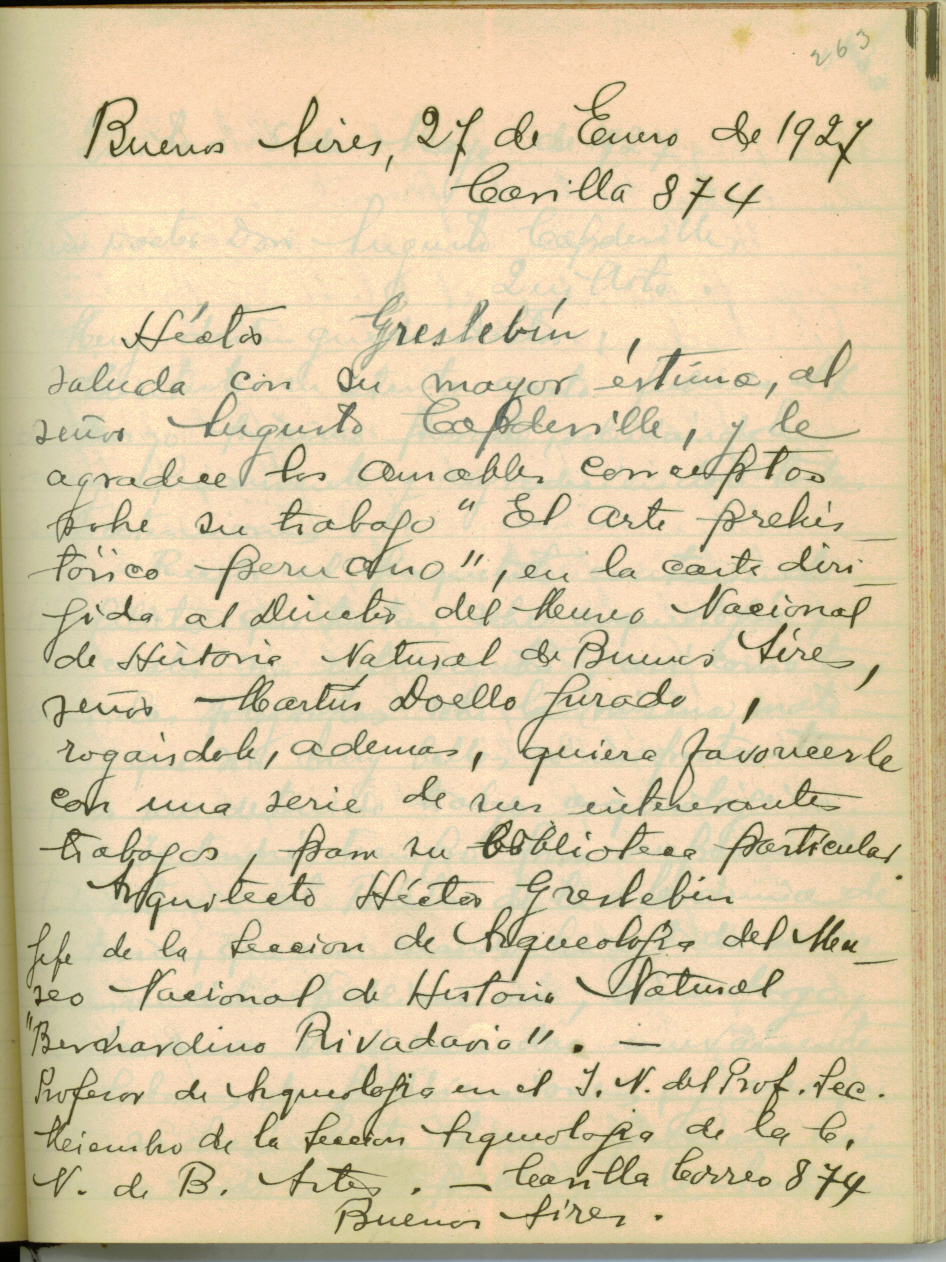 263
Buenos Aires, 27 de Enero de 1927
Casilla 874
Héctor Greslebín,
saluda con su mayor éstima, al
señor Augusto Capdeville, y le
agradece los amables conceptos
sobre su trabajo " El arte prehis_
tórico peruano", en la carta diri_
gida al Director del Museo Nacional
de Historia Natural de Buenos Aires,
señor Martín Doello Jurado,
rogándole, ademas, quiera favorecerle
con una serie de sus interesantes
trabajos, para su biblioteca particular.
Arquitecto Héctor Greslebín
Jefe de la Seccion de Arqueologia del Mu_
seo Nacional de Historia Natural
"Bernardino Rivadavia". —
Profesor de Arqueologia en el I. N. del Prof. Sec.
Miembro de la Seccion Arqueologia de la C.
N. de B. Artes. — Casilla Correo 874
Buenos Aires.